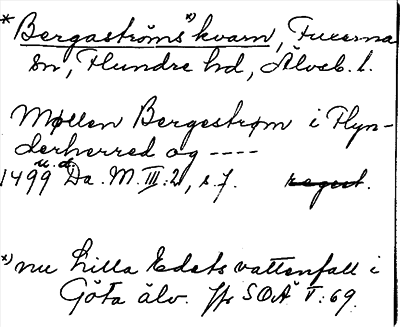 * Bergaströms *) kvarn, Fuxerna
sn, Flundre hd, Älvsb. l.
Møllen Bergestrøm i Flyn-
derherred og ----
1499 u.d. Da. M. III:2, s. 7. regest.
*) nu Lilla Edets vattenfall i
Göta älv. Jfr SOÄ V:69.